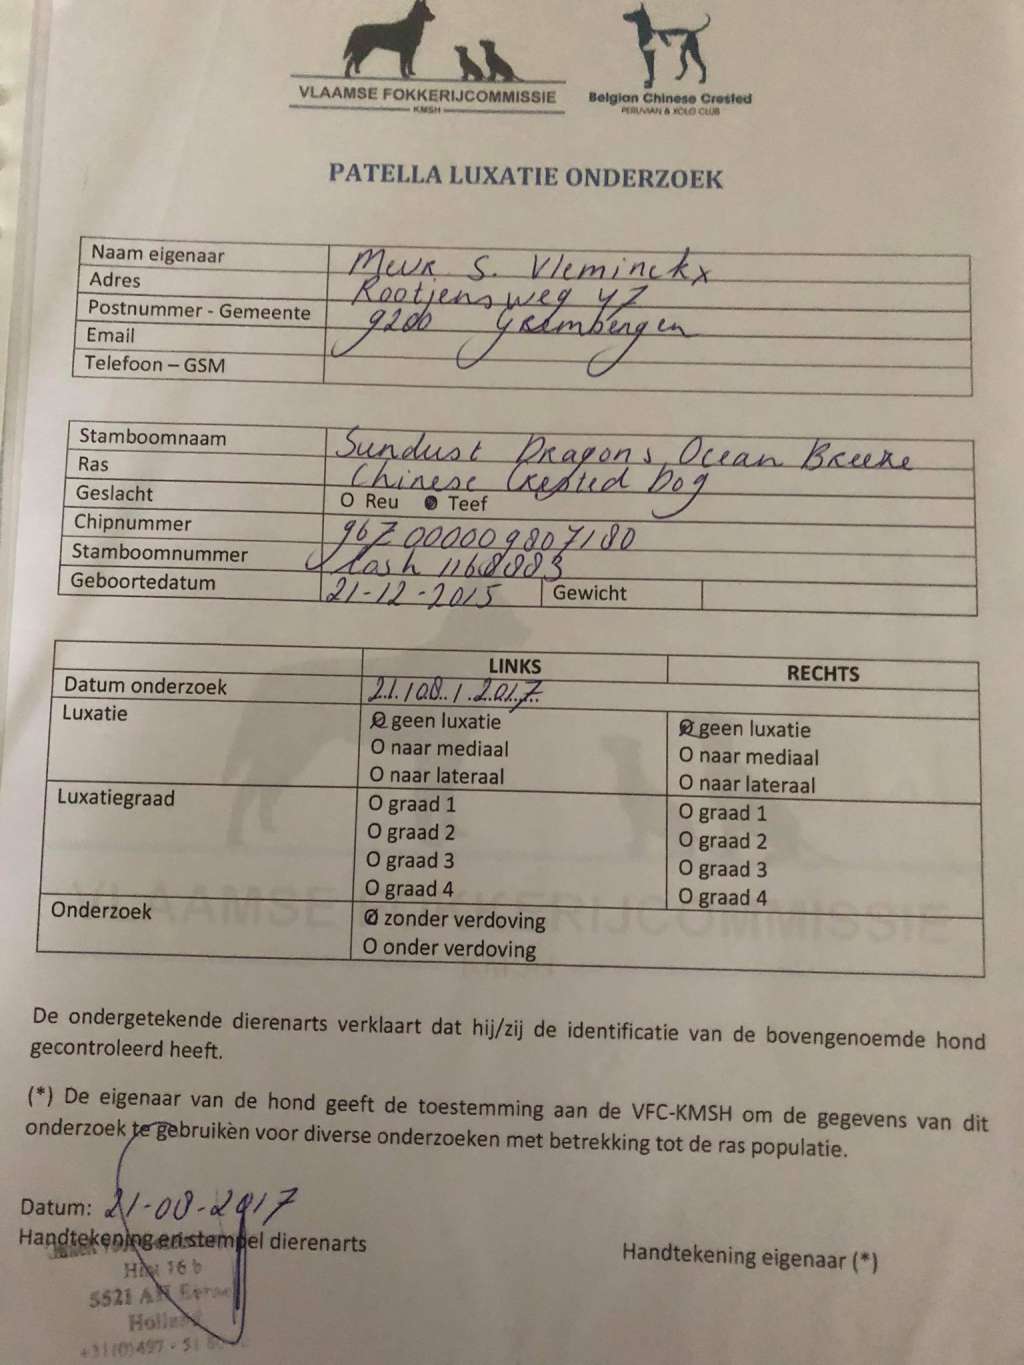 VLAAMSE FOKKERIJCOMMISSIE
KMSH
Belgian Chinese Crested
PERUVIAN & XOLO CLUB
PATELLA LUXATIE ONDERZOEK
Naam eigenaar Mevr S. Vleminckx
Adres Rootjensweg 47
Postnummer - Gemeente 9200 Grembergen
Email
Telefoon – GSM
Stamboomnaam Sundust Dragons Ocean Breeze
Ras Chinese Crested Dog
Geslacht O Reu O Teef
Chipnummer 967000009807180
Stamboomnummer Losh 1168883
Geboortedatum 21-12-2015 Gewicht
LINKS RECHTS
Datum onderzoek 21/08/2017
Luxatie O geen luxatie O geen luxatie
O naar mediaal O naar mediaal
O naar lateraal O naar lateraal
Luxatiegraad O graad 1 O graad 1
O graad 2 O graad 2
O graad 3 O graad 3
O graad 4 O graad 4
Onderzoek O zonder verdoving
O onder verdoving
VLAAMSE FOKKERIJCOMMISSIE
KMSH
De ondergetekende dierenarts verklaart dat hij/zij de identificatie van de bovengenoemde hond
gecontroleerd heeft.
(*) De eigenaar van de hond geeft de toestemming aan de VFC-KMSH om de gegevens van dit
onderzoek te gebruiken voor diverse onderzoeken met betrekking tot de ras populatie.
Datum: 21-08-2017
Handtekening en stempel dierenarts Handtekening eigenaar (*)
16 b
5521
Holland
+31(0)497 - 51